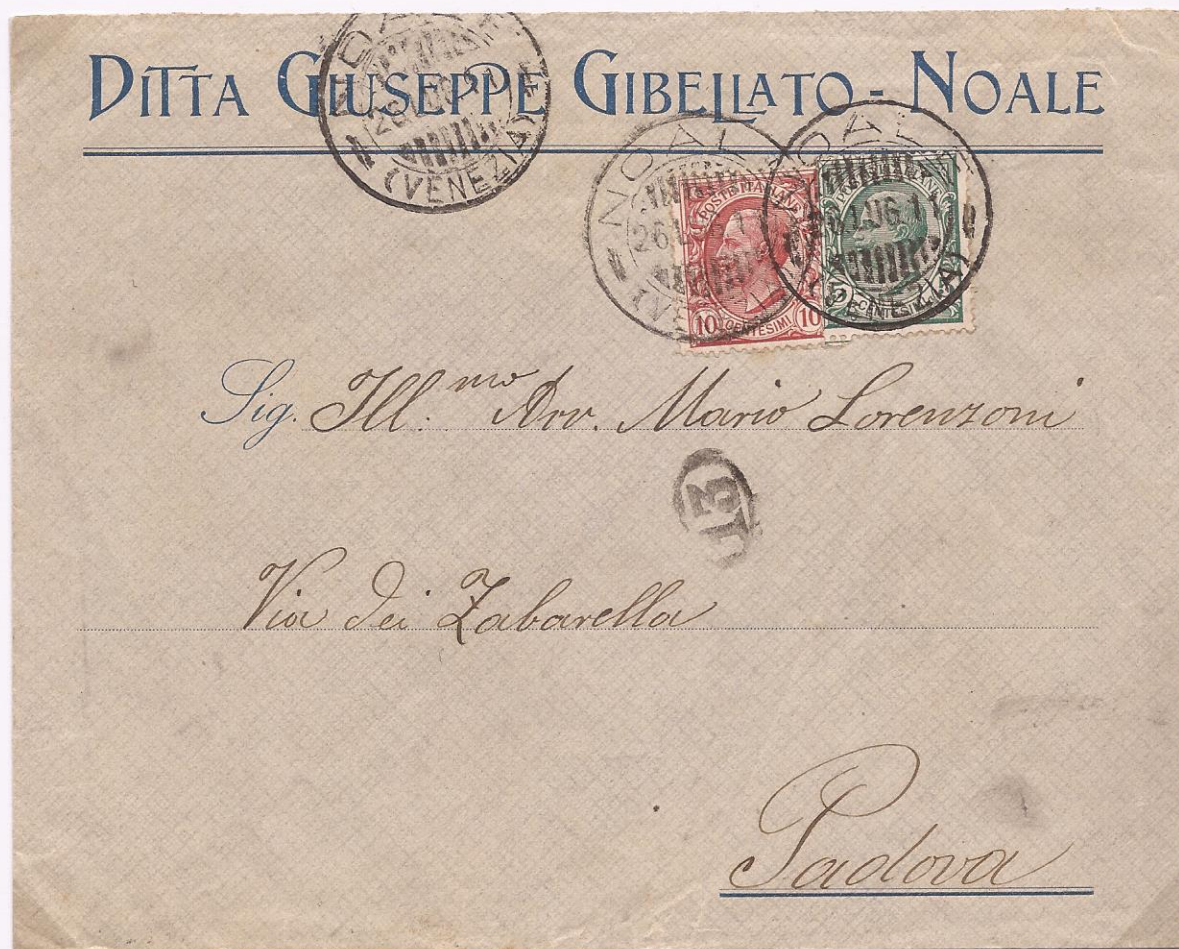 DITTA GIUSEPPE GIBELLATO - NOALE
NOALE
26 LUG 11
(VENEZIA)
NOALE
26 LUG 11
(VENEZIA)
NOALE
26 LUG 11
(VENEZIA)
POSTE ITALIANE
10 CENTESIMI 10
5 CENTESIMI
Sig. Ill.mo Avv. Mario Lorenzoni
13
Via dei Zabarella
Padova